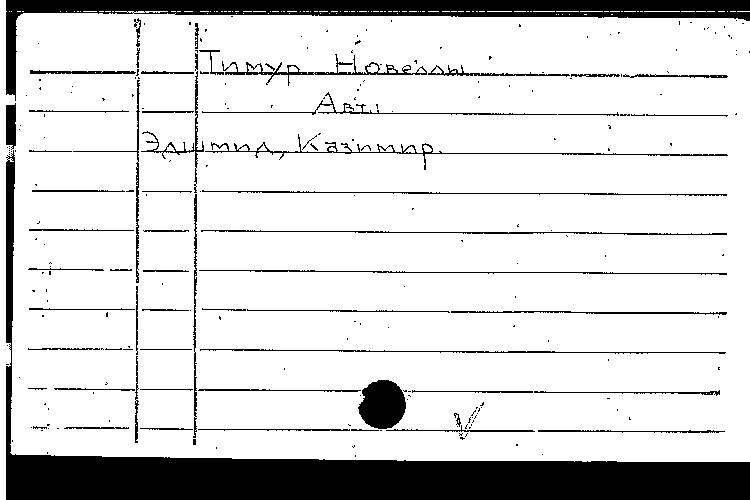 Тимур Новеллы
Авт.:
Эдшмид, Казимир.